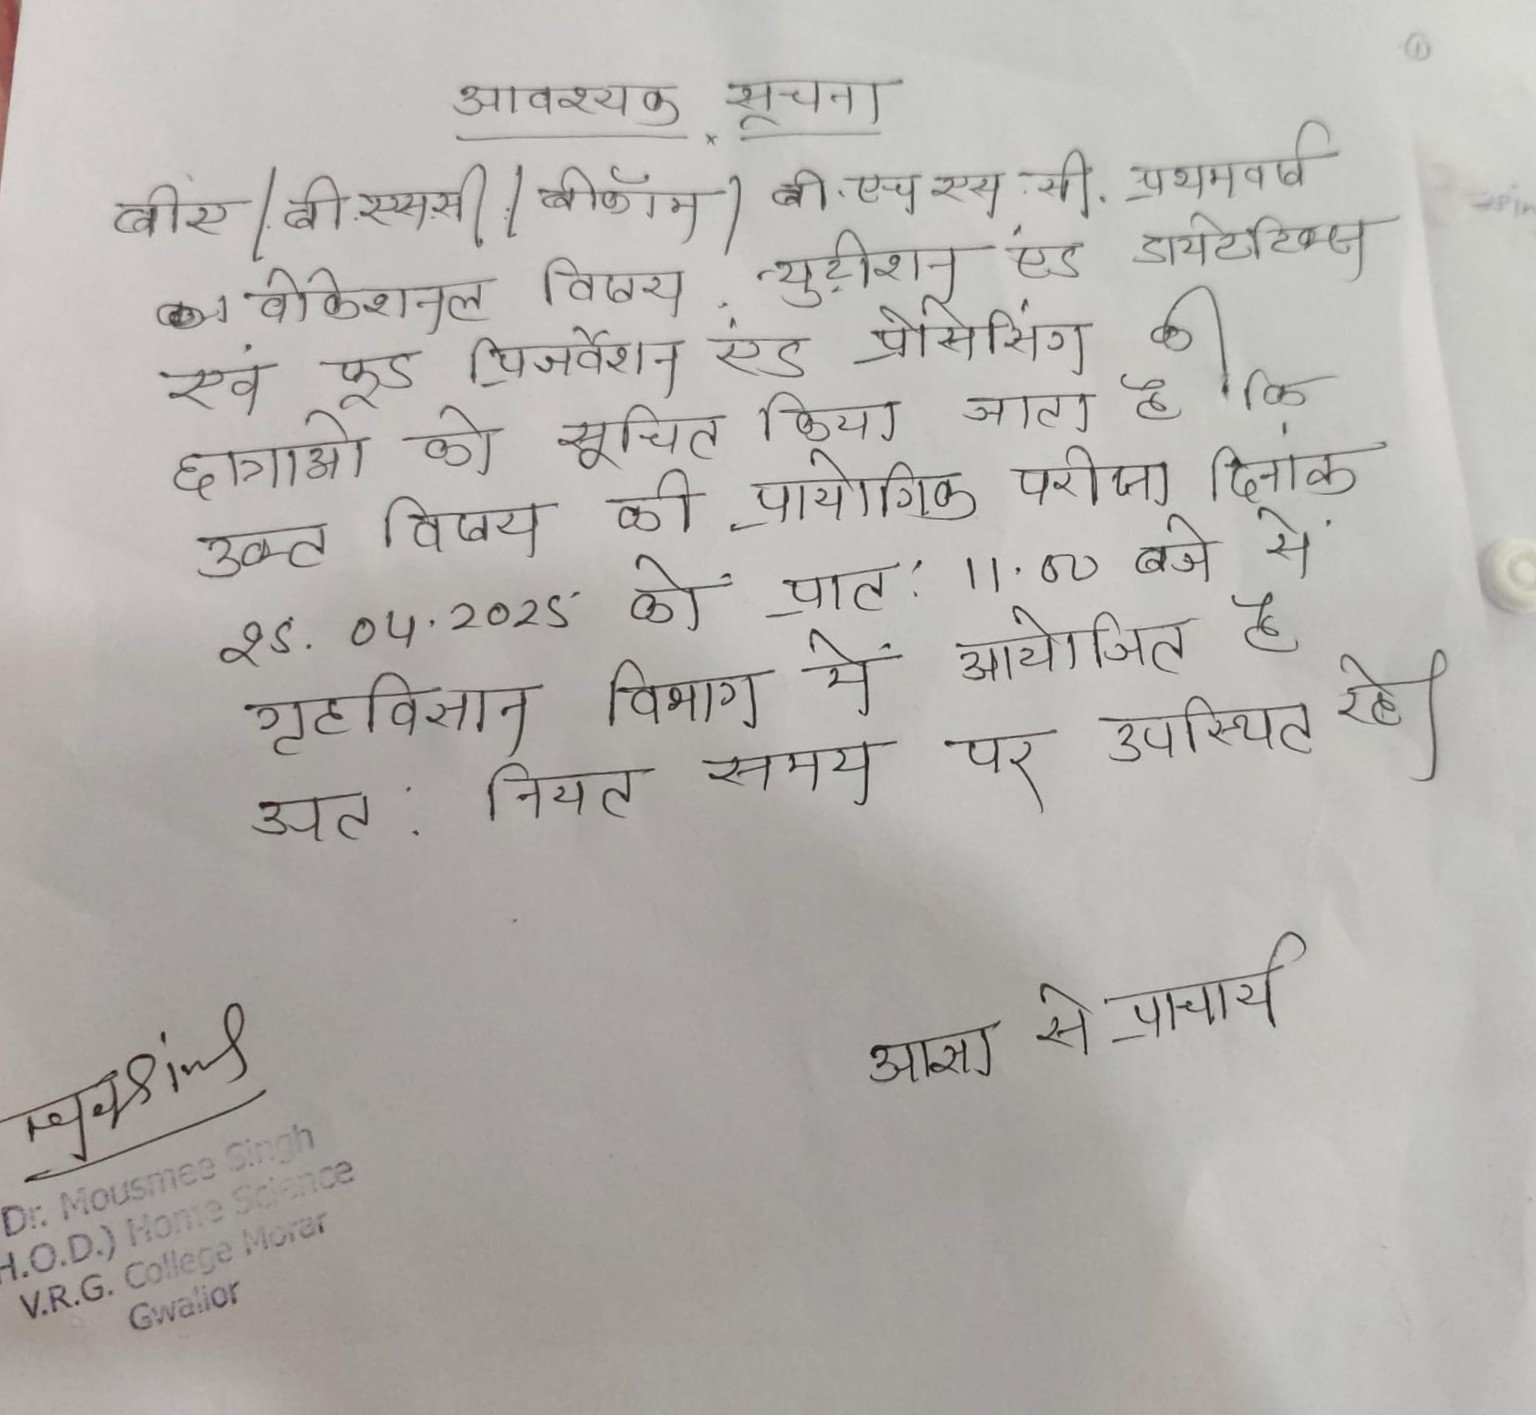 आवश्यक सूचना
बीए/बी.एससी/बीकॉम/बी.एच एस.सी. प्रथमवर्ष
का वोकेशनल विषय न्युट्रीशन एंड डायटेटिक्स
एवं फूड प्रिजर्वेशन एंड प्रोसेसिंग की
छात्राओ को सूचित किया जाता है कि
उक्त विषय की प्रायोगिक परीक्षा दिनांक
25.04.2025 को प्रात: 11.00 बजे से
गृहविज्ञान विभाग में आयोजित है
अत: नियत समय पर उपस्थित रहे।
आज्ञा से प्राचार्य
Dr. Mousmee Singh
H.O.D.) Home Science
V.R.G. College Morar
Gwalior